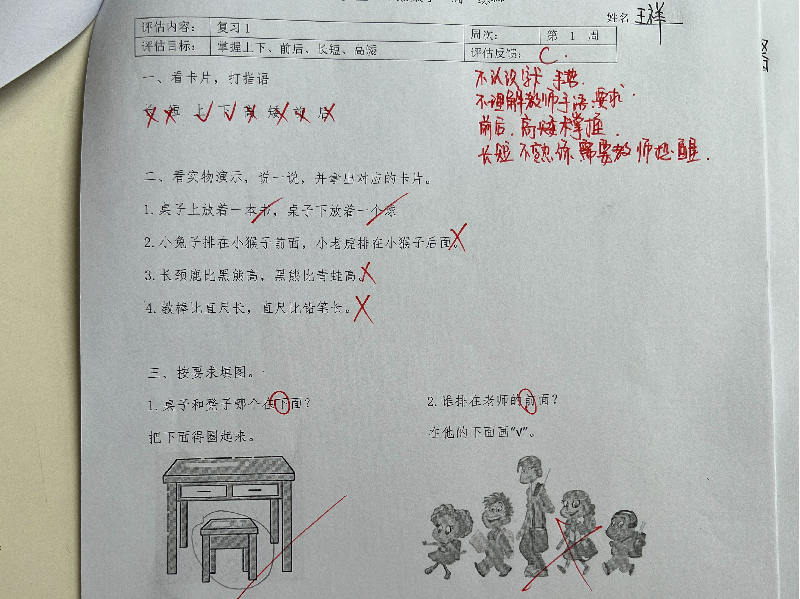 姓名 王祥
评估内容： 复习1 周次： 第 1 周
评估目标： 掌握上下、前后、长短、高矮 评估反馈： C.
不理解教师手语要求.
前后、高矮未掌握.
长短不熟练需要教师提醒.
一、看卡片，打指语
长 短 上 下 高 矮 前 后
二、看实物演示，说一说，并拿出对应的卡片。
1.桌子上放着一本书，桌子下放着一个
2.小兔子排在小猴子前面，小老虎排在小猴子后面。
3.长颈鹿比黑熊高，黑熊比青蛙高。
4.教棒比直尺长，直尺比铅笔长。
三、按要求填图。
1.桌子和凳子哪个在下面？
把下面得圈起来。
2.谁排在老师的前面？
在他的下面画“√”。